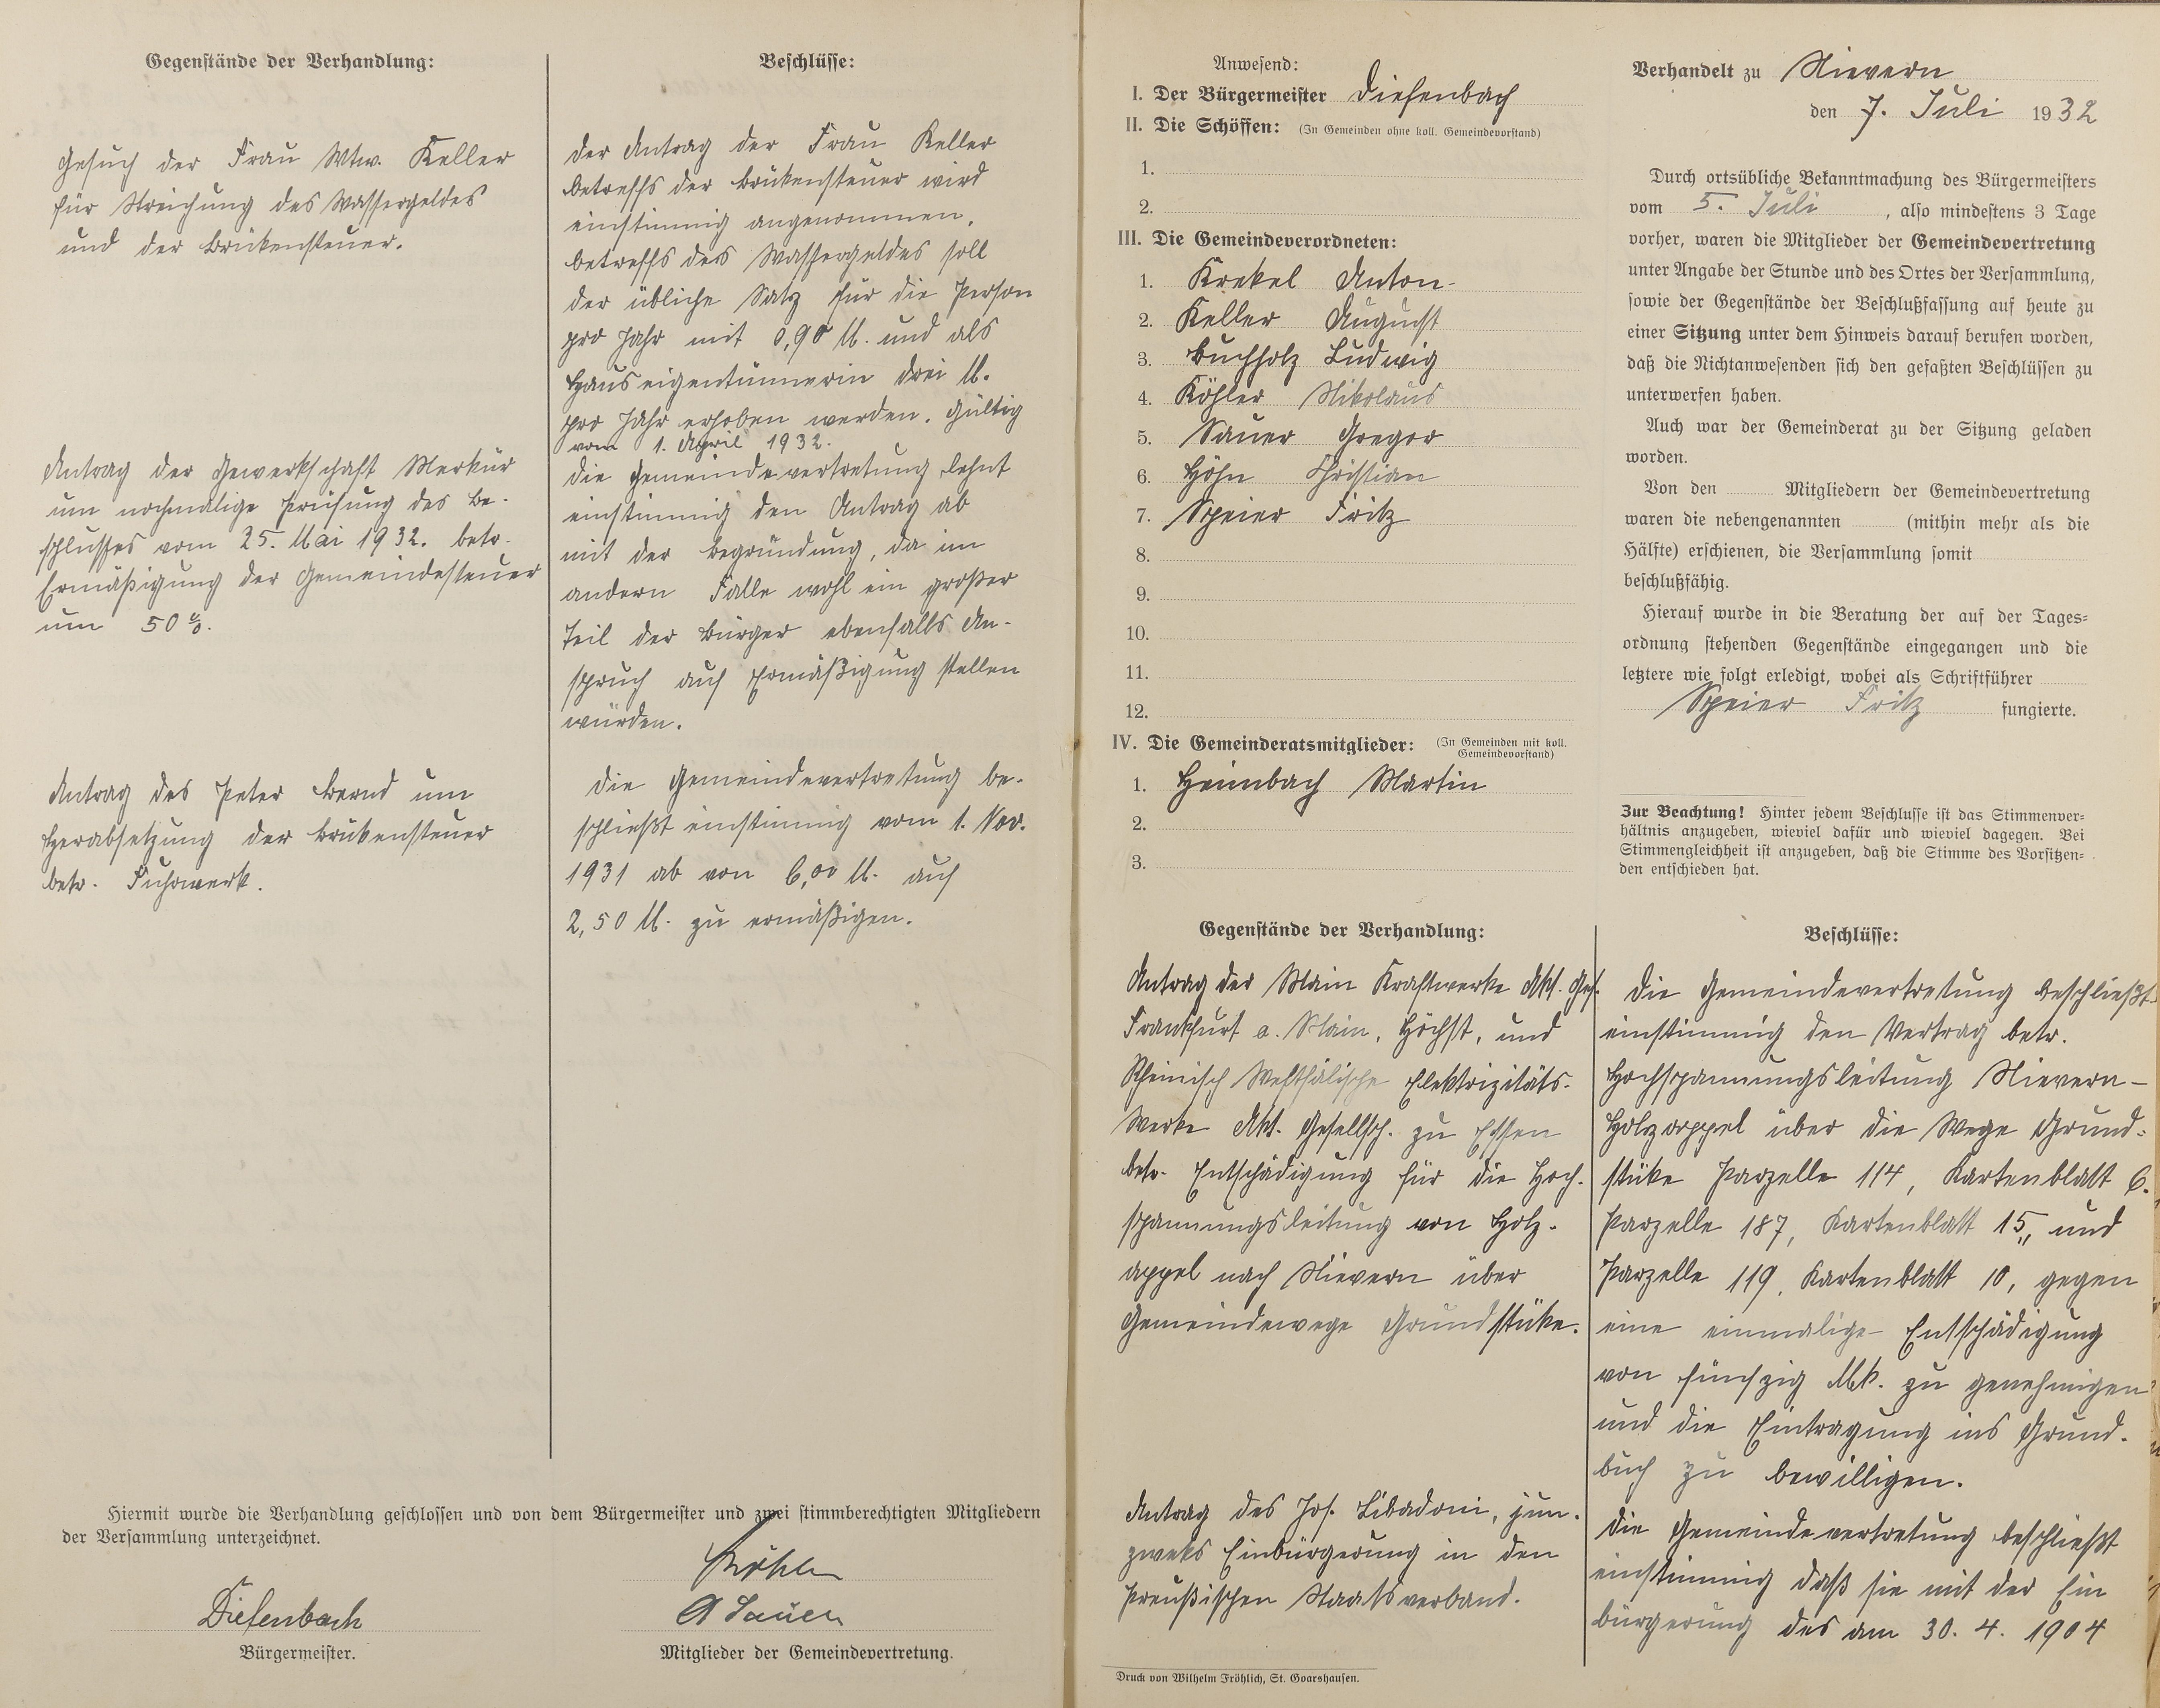 Gegenstände der Verhandlung:
Gesuch der Frau Wtw. Keller
für Streichung des Wassergeldes
und der Brükensteuer.
Antrag der Gewerkschaft Merkur
um nochmalige Prüfung des Be-
schlusses vom 25. Mai 1932. betr.
Ermäßigung der Gemeindesteuer
um 50 %.
Antrag des Peter Bernd um
Herabsetzung der Brükensteuer
betr. Fuhrwerk.
Beschlüsse:
Der Antrag der Frau Keller
betreffs der Brükensteuer wird
einstimmig angenommen.
Betreffs des Wassergeldes soll
der übliche Satz für die Person
pro Jahr mit 0,90 M. und als
Hauseigentümerin drei M.
pro Jahr erhoben werden. Gültig
vom 1. April 1932.
Die Gemeindevertretung lehnt
einstimmig den Antrag ab
mit der Begründung, da im
andern Falle wohl ein großer
Teil der Bürger ebenfalls An-
spruch auf Ermäßigung stellen
würden.
Die Gemeindevertretung be-
schließt einstimmig vom 1. Nov.
1931 ab von 6,00 M. auf
2,50 M. zu ermäßigen.
Hiermit wurde die Verhandlung geschlossen und von dem Bürgermeister und zwei stimmberechtigten Mitgliedern
der Versammlung unterzeichnet.
Köhler
Diefenbach
G Sauer
Bürgermeister.
Mitglieder der Gemeindevertretung.
Anwesend:
I. Der Bürgermeister Diefenbach
II. Die Schöffen: (In Gemeinden ohne koll. Gemeindevorstand)
1.
2.
III. Die Gemeindeverordneten:
1. Krekel Anton
2. Keller August
3. Buchholz Ludwig
4. Köhler Nikolaus
5. Sauer Gregor
6. Höhn Christian
7. Speier Fritz
8.
9.
10.
11.
12.
IV. Die Gemeinderatsmitglieder: (In Gemeinden mit koll.
Gemeindevorstand)
1. Heimbach Martin
2.
3.
Verhandelt zu Nievern
den 7. Juli 1932
Durch ortsübliche Bekanntmachung des Bürgermeisters
vom 5. Juli, also mindestens 3 Tage
vorher, waren die Mitglieder der Gemeindevertretung
unter Angabe der Stunde und des Ortes der Versammlung,
sowie der Gegenstände der Beschlußfassung auf heute zu
einer Sitzung unter dem Hinweis darauf berufen worden,
daß die Nichtanwesenden sich den gefaßten Beschlüssen zu
unterwerfen haben.
Auch war der Gemeinderat zu der Sitzung geladen
worden.
Von den Mitgliedern der Gemeindevertretung
waren die nebengenannten (mithin mehr als die
Hälfte) erschienen, die Versammlung somit
beschlußfähig.
Hierauf wurde in die Beratung der auf der Tages-
ordnung stehenden Gegenstände eingegangen und die
letztere wie folgt erledigt, wobei als Schriftführer
Speier Fritz fungierte.
Zur Beachtung! Hinter jedem Beschlusse ist das Stimmenver-
hältnis anzugeben, wieviel dafür und wieviel dagegen. Bei
Stimmengleichheit ist anzugeben, daß die Stimme des Vorsitzen-
den entschieden hat.
Gegenstände der Verhandlung:
Antrag der Main Kraftwerke Akt. Ges.
Frankfurt a. Main, Höchst, und
Rheinisch Westfälische Elektrizitäts-
Werke Akt. Gesellsch. zu Essen
betr. Entschädigung für die Hoch-
spannungsleitung von Holz-
appel nach Nievern über
Gemeindewege Grundstüke.
Antrag des Jos. Libadoni, jun.
zweks Einbürgerung in den
Preußischen Staatsverband.
Beschlüsse:
Die Gemeindevertretung beschließt
einstimmig den Vertrag betr.
Hochspannungsleitung Nievern-
Holzappel über die Wege Grund-
stüke Parzelle 114, Kartenblatt 6.
Parzelle 187, Kartenblatt 15,, und
Parzelle 119, Kartenblatt 10, gegen
eine einmalige Entschädigung
von fünfzig Mk. zu genehmigen
und die Eintragung ins Grund-
buch zu bewilligen.
Die Gemeindevertretung beschließt
einstimmig daß sie mit der Ein
bürgerung des am 30. 4. 1904
Druck von Wilhelm Fröhlich, St. Goarshausen.